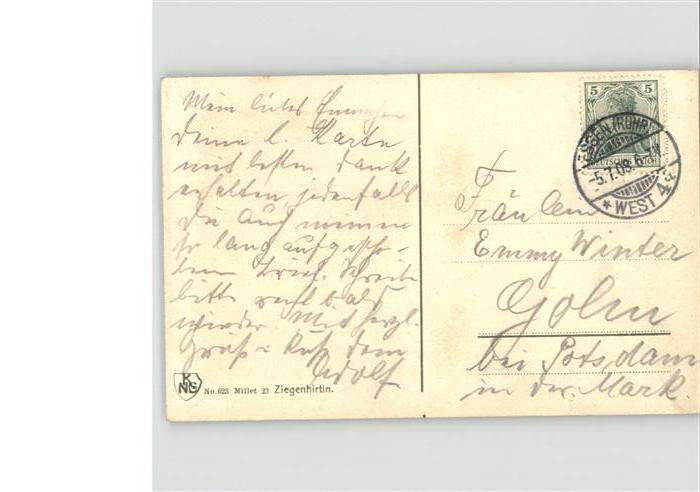 Mein liebes Emmchen
Deine l. Karte
mit besten Dank
erhalten, jedenfalls
Du auch meinen
so lang aufgescho-
benen Brief. Schreibe
bitte recht bald
wieder Mit herzl.
Gruß u Kuß Dein
Adolf
KNG No. 623 Millet 23 Ziegenhirtin.
5 5
DEUTSCHES REICH
ESSEN (RUHR)
-5.7.09.
* WEST 4
Fräulein
Emmy Winter
Golm
bei Potsdam
in der Mark.